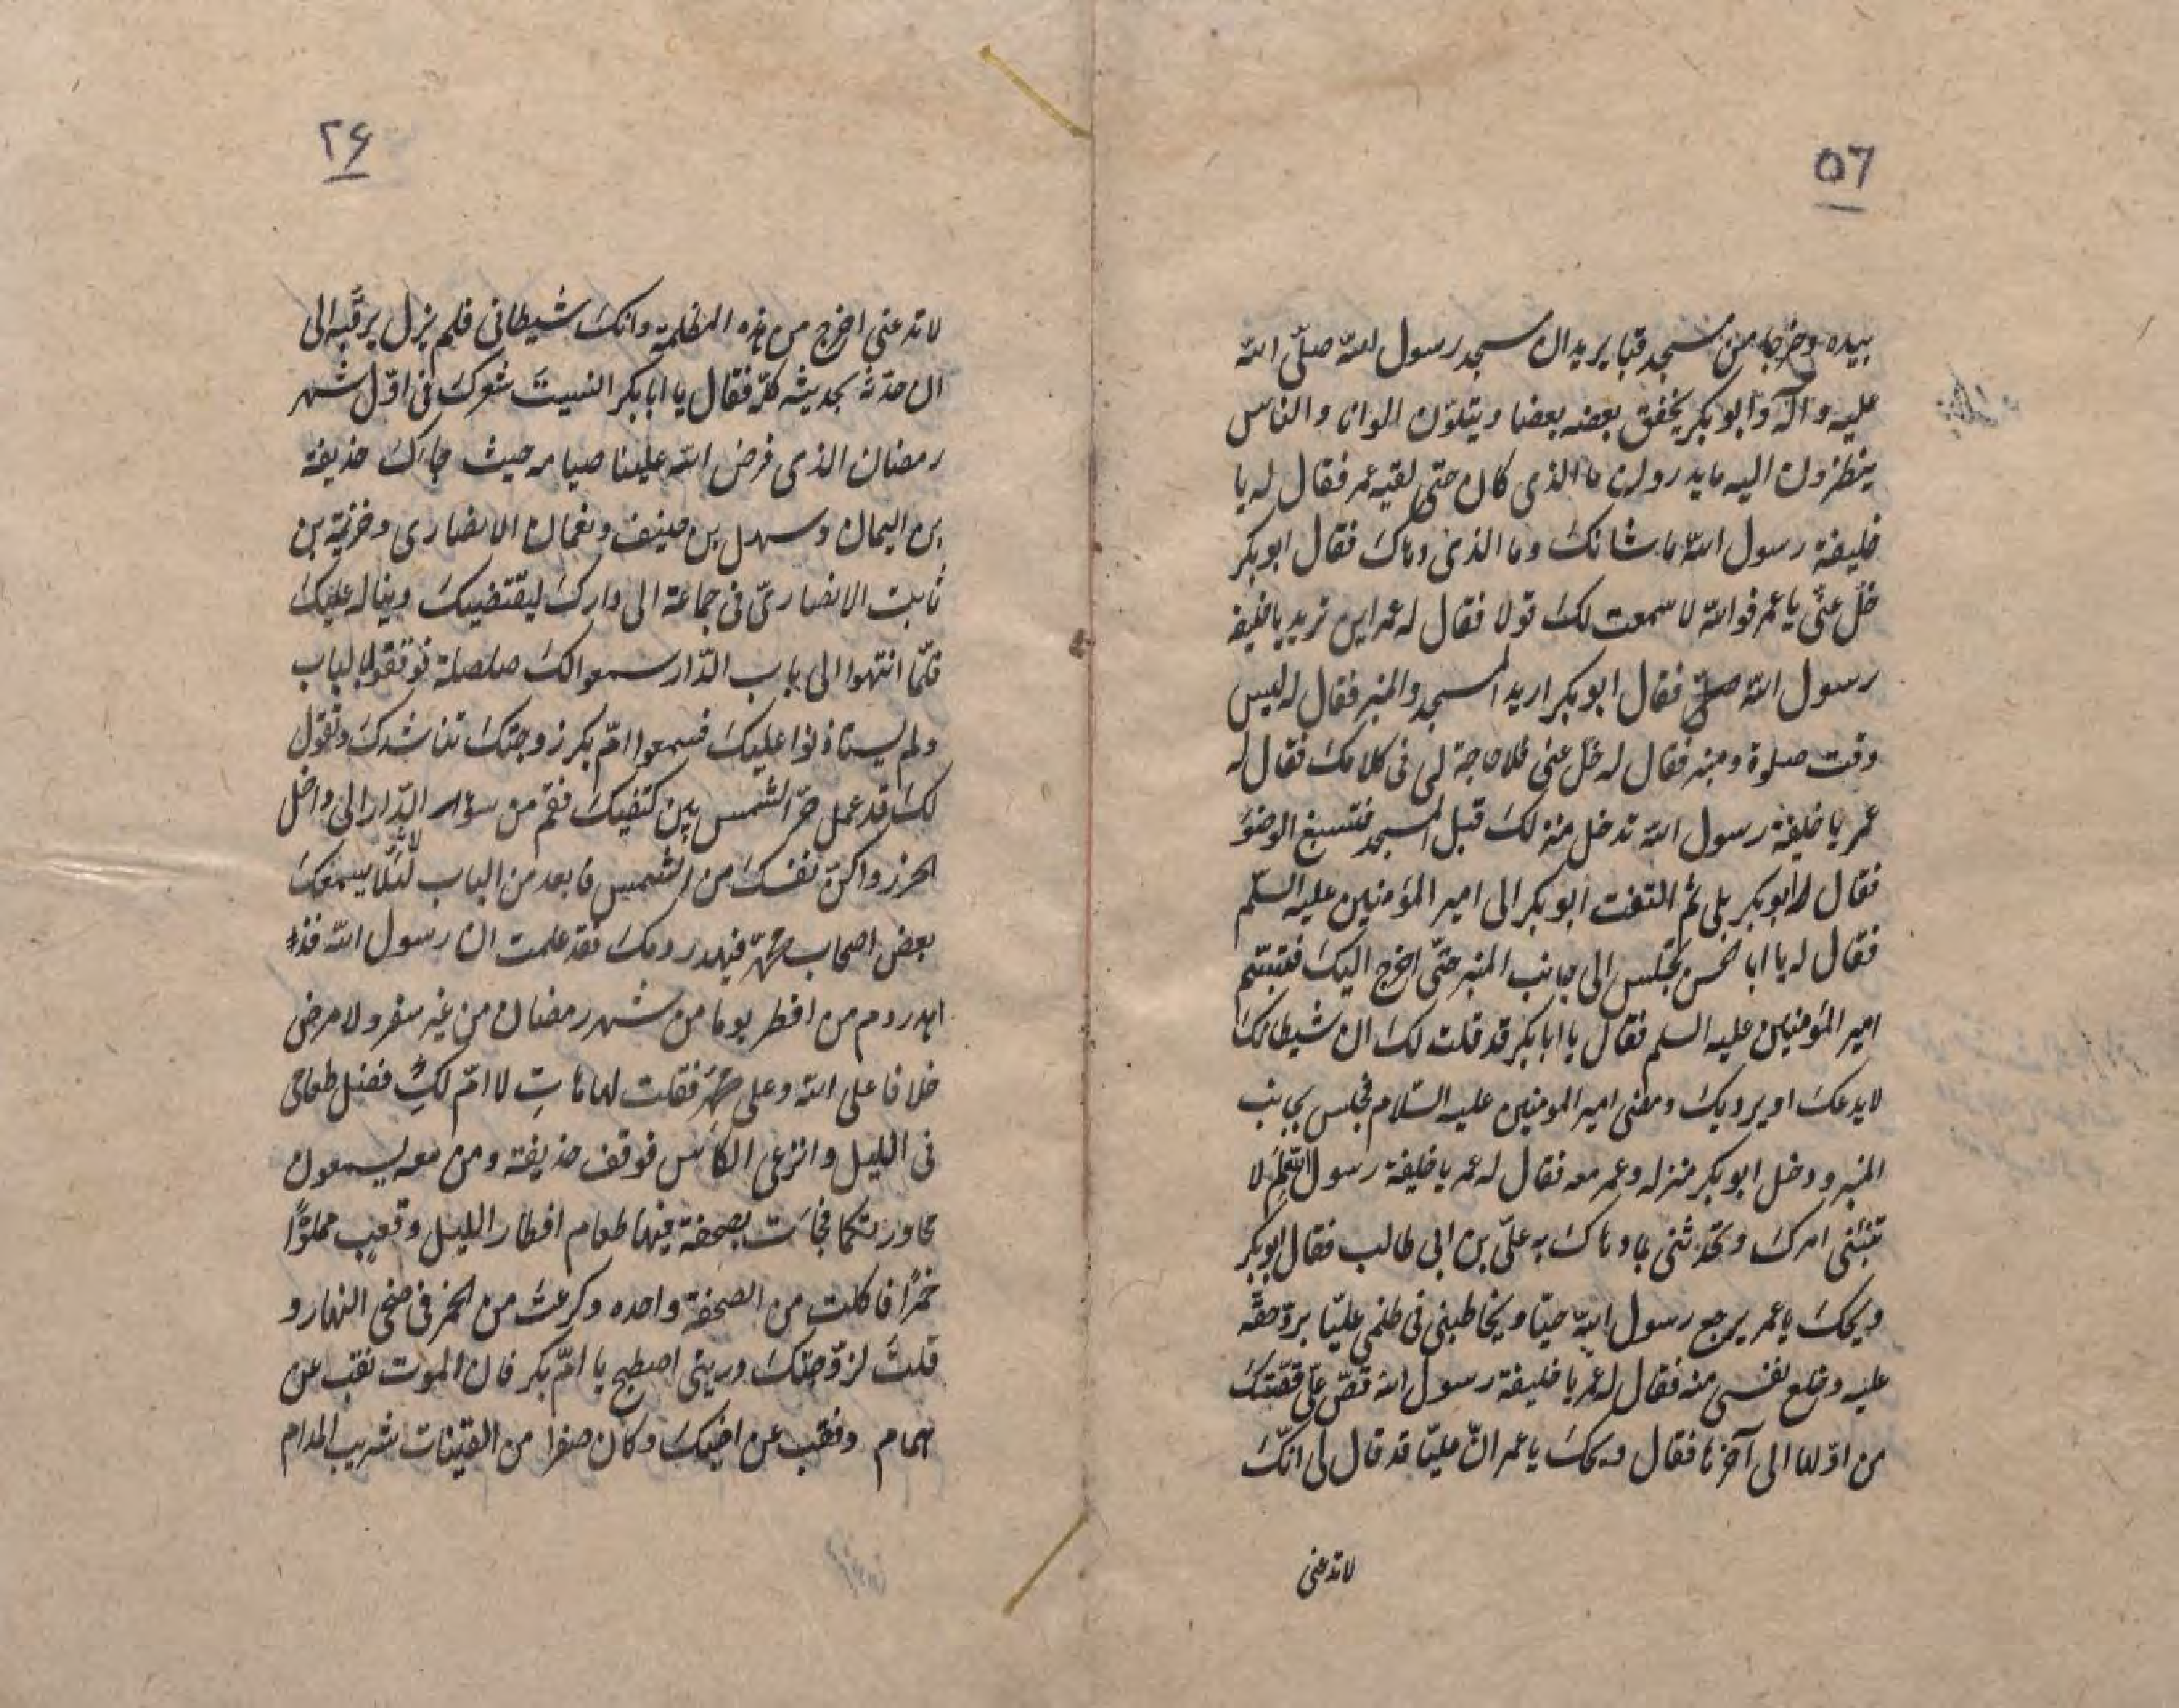 ٥٦
بيده وخرجا من مسجد قبا يريدان مسجد رسول الله صلّى الله
عليه وآله وابوبكر يخفق بعضه بعضا ويتلوّن الوانا والناس
ينظرون اليه ما يدرون ما الذى كان حتّى لقيه عمر فقال له يا
خليفة رسول الله ما شانك وما الذى دهاك فقال ابوبكر
خلّ عنّى يا عمر فوالله لا سمعت لك قولا فقال له عمر اين تريد يا خليفة
رسول الله صلّى فقال ابوبكر اريد المسجد والمنبر فقال له ليس
وقت صلوة ومنبر فقال له خلّ عنى فلا حاجة لى فى كلامك فقال له
عمر يا خليفة رسول الله تدخل منزلك قبل المسجد فتسبغ الوضوء
فقال له ابوبكر بلى ثمّ التفت ابوبكر الى امير المؤمنين عليه السلم
فقال له يا ابا الحسن تجلس الى جانب المنبر حتّى اخرج اليك فتبسّم
امير المؤمنين عليه السلم فقال يا ابابكر قد قلت لك ان شيطانك
لا يدعك او يرديك ومضى امير المومنين عليه السّلام فجلس بجانب
المنبر ودخل ابوبكر منزله وعمر معه فقال له عمر يا خليفة رسول الله لم لا
تنبّئنى امرك وتحدّثنى بما دهاك به علىّ بن ابى طالب فقال ابوبكر
ويحك يا عمر يرجع رسول الله حيّا ويخاطبنى فى ظلمى عليّا بردّ حقّه
عليه وخلع نفسى منه فقال له عمر يا خليفة رسول الله قصّ علىّ قصّتك
من اوّلها الى آخرها فقال ويحك يا عمر انّ عليّا قد قال لى انّك
لا تدعنى
٢۶
لا تدعنى اخرج من هذه المظلمة وانك شيطانى فلم يزل يرقّبه الى
ان حدّثه بحديثه كلّه فقال يا ابابكر انسيت شعرك فى اوّل شهر
رمضان الذى فرض الله علينا صيامه حيث جاءك حذيفة
بن اليمان وسهل بن حنيف ونعمان الانصارى وخزيمة بن
ثابت الانصارىّ فى جماعة الى دارك ليقتضيك دينا له عليك
فلمّا انتهوا الى باب الدّار سمعوا لك صلصلة فوقفوا بالباب
ولم يستاذنوا عليك فسمعوا امّ بكر زوجتك تناشدك وتقول
لك قد عمل حرّ الشمس بين كتفيك فقم من سواء الدّار الى داخل
الحرز واكنّ نفسك من الشمس فابعد من الباب لئلّا يسمعك
بعض اصحاب محمّد فيهدر دمك فقد علمت ان رسول الله قد
اهدر دم من افطر يوما من شهر رمضان من غير سفر ولا مرض
خلافا على الله وعلى محمّد فقلت لها هاتِ لا امّ لكِ فضل طعامى
فى الليل واترعى الكاس فوقف حذيفة ومن معه يسمعون
محاورتكما فجاءت بصحفة فيها طعام افطار الليل وقعب مملوّا
خمرًا فاكلت من الصحفة واحده وكرعت من الخمر فى ضحى النهار و
قلتَ لزوّجتك ذرينى اصطبح يا امّ بكر فان الموت نقّب عن
همام ونقّب عن اخيك وكان صغرا من القينات شريب المدام